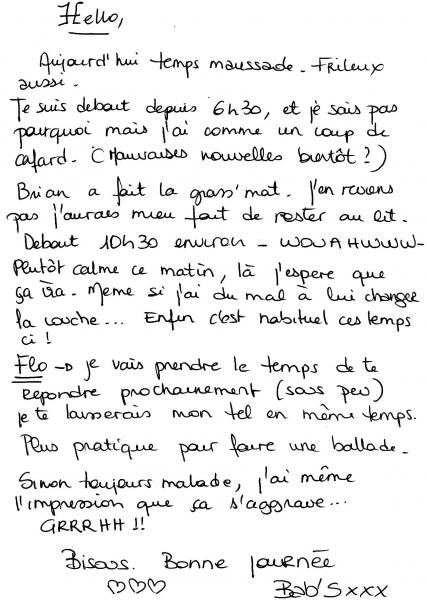 Hello,
Aujourd'hui temps maussade. Frileux
aussi.
Je suis debout depuis 6h30, et je sais pas
pourquoi mais j'ai comme un coup de
cafard. (Mauvaises nouvelles bientôt ?)
Brian a fait la grass'mat. J'en reviens
pas j'aurais mieu fait de rester au lit.
Debout 10h30 environ - WOUAHWWW-
Plutôt calme ce matin, là j'espere que
ça ira. Meme si j'ai du mal à lui changer
la couche... Enfin c'est habituel ces temps
ci !
Flo → je vais prendre le temps de te
repondre prochainement (sous peu)
je te laisserais mon tel en même temps.
Plus pratique pour faire une ballade.
Sinon toujours malade, j'ai même
l'impression que ça s'aggrave...
GRRRHH !!
Bisous. Bonne journée
♡♡♡ Bab'S xxx